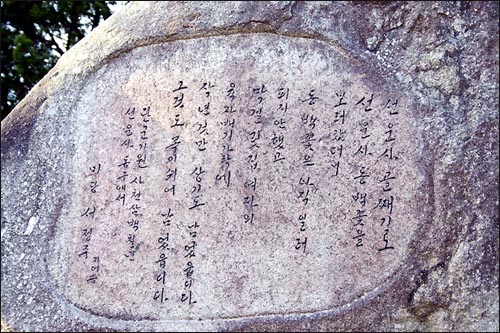 선운사 골째기로
선운사 동백꽃을
보러갔더니
동백꽃은 아직 일러
피지안했고
막걸릿집 여자의
육자배기가락에
작년것만 상기도 남었읍디다
그것도 목이쉬어 남었읍디다
단군기원 사천삼백칠년
선운사 동구에서
미당 서정주